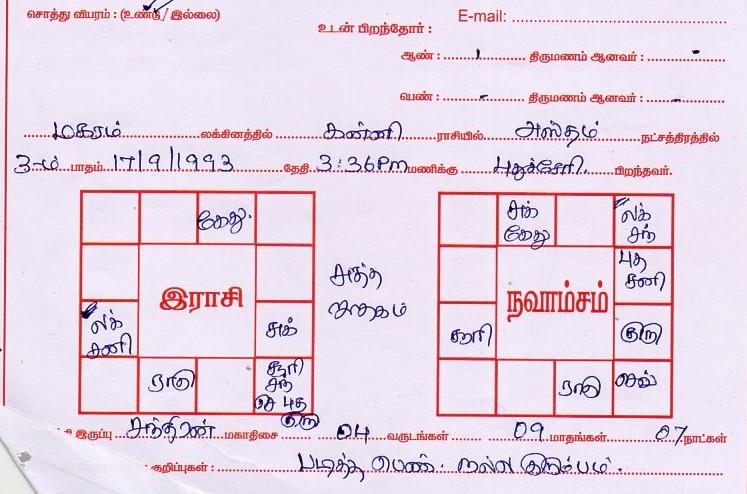 சொத்து விபரம் : (உண்டு / இல்லை)
E-mail:
உடன் பிறந்தோர் :
ஆண் : 1 திருமணம் ஆனவர் : -
பெண் : - திருமணம் ஆனவர் : -
மகரம் லக்கினத்தில் கன்னி ராசியில் அஸ்தம் நட்சத்திரத்தில்
3-ம் பாதம் 17/9/1993 தேதி 3:36Pm மணிக்கு புதுச்சேரி. பிறந்தவர்.
கேது.
இராசி
லக் சனி
சுக்
ராகு
சூரி சந் செ புத குரு
சுத்த ஜாதகம்
சுக் கேது
லக் சந்
புத சனி
நவாம்சம்
சூரி
குரு
ராகு
செவ்
இருப்பு சந்திரன் மகாதிசை 04 வருடங்கள் 09 மாதங்கள் 07 நாட்கள்
குறிப்புகள் : படித்த பெண். நல்ல குடும்பம்.